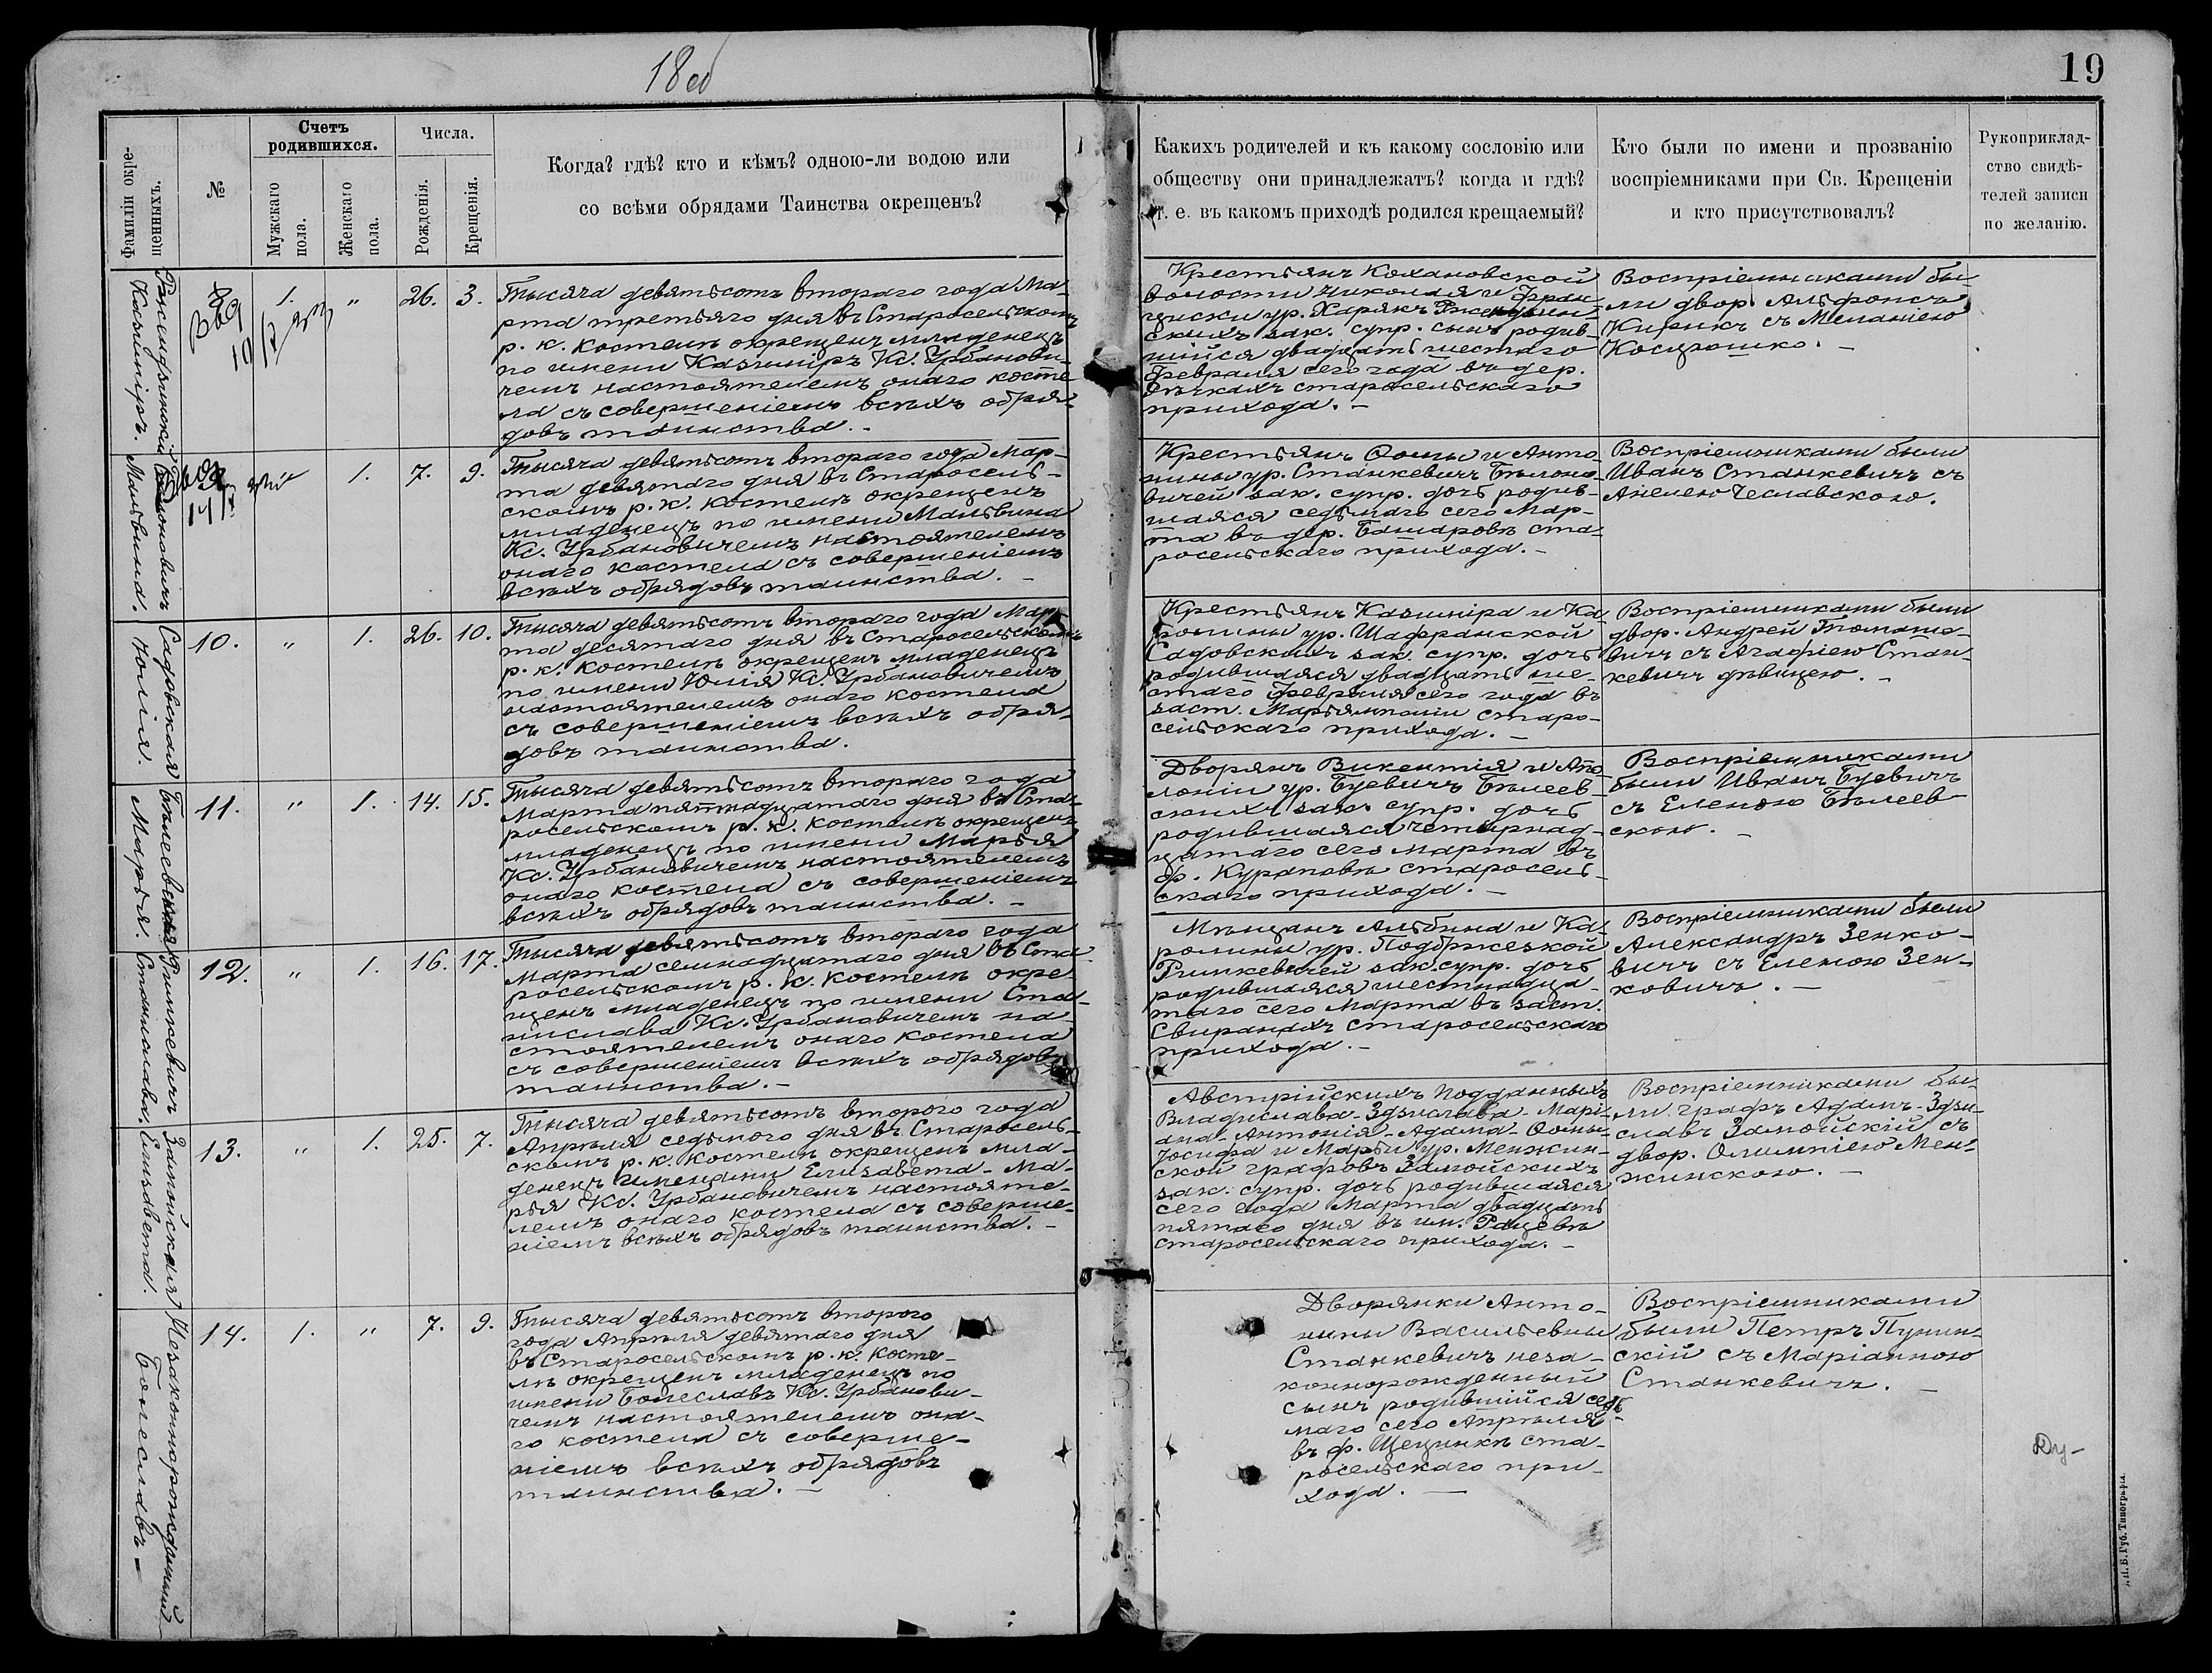 18об
19
Фамиліи окре-
щенныхъ.
№
Счетъ
родившихся.
Мужскаго
пола.
Женскаго
пола.
Числа.
Рожденія.
Крещенія.
Когда? гдѣ? кто и кѣмъ? одною-ли водою или
со всѣми обрядами Таинства окрещенъ?
Какихъ родителей и къ какому сословію или
обществу они принадлежатъ? когда и гдѣ?
т. е. въ какомъ приходѣ родился крещаемый?
Кто были по имени и прозванію
воспріемниками при Св. Крещеніи
и кто присутствовалъ?
Рукоприклад-
ство свидѣ-
телей записи
по желанію.
Казиміръ.
1. " 26. 3.
Тысяча девятьсотъ втораго года Ма-
рта третьяго дня въ Старосельскомъ
р. к. костелѣ окрещенъ младенецъ
по имени Казиміръ Кс. Урбанови-
чемъ настоятелемъ онаго косте-
ла съ совершеніемъ всѣхъ обря-
довъ таинства. -
Крестьянъ Кохановской
волости Николая и Фран-
циски ур. Харякъ
скихъ зак. супр. сынъ родив-
шійся двадцать шестаго
Февраля сего года въ дер.
старосельскаго
прихода. -
Воспріемниками бы-
ли двор. Альфонсъ
съ Меланіею
Косцюшко. -
Мальвина.
" 1. 7. 9.
Тысяча девятьсотъ втораго года Мар-
та девятаго дня въ Старосель-
скомъ р. к. костелѣ окрещенъ
младенецъ по имени Мальвина
Кс. Урбановичемъ настоятелемъ
онаго костела съ совершеніемъ
всѣхъ обрядовъ таинства. -
Крестьянъ Ѳомы и Анто-
нины ур. Станкевичъ Бѣлоно-
вичей зак. супр. дочь родив-
шаяся седьмаго сего Мар-
та въ дер. Башаровѣ ста-
росельскаго прихода. -
Воспріемниками были
Иванъ Станкевичъ съ
Анелею Чеславскою.
Садовская
Юлія.
10. " 1. 26. 10.
Тысяча девятьсотъ втораго года Мар-
та десятаго дня въ Старосельскомъ
р. к. костелѣ окрещенъ младенецъ
по имени Юлія Кс. Урбановичемъ
настоятелемъ онаго костела
съ совершеніемъ всѣхъ обря-
довъ таинства.
Крестьянъ Казиміра и Ка-
ролины ур. Шафранской
Садовскихъ зак. супр. дочь
родившаяся двадцать ше-
стаго Февраля сего года въ
заст. Марьямполи старо-
сельскаго прихода. -
Воспріемниками были
двор. Андрей Томаше-
вичъ съ Агафіею Стан-
кевичъ дѣвицею. -
Бѣлеевская
Марья.
11. " 1. 14. 15.
Тысяча девятьсотъ втораго года
Марта пятнадцатаго дня въ Ста-
росельскомъ р. к. костелѣ окрещенъ
младенецъ по имени Марья
Кс. Урбановичемъ настоятелемъ
онаго костела съ совершеніемъ
всѣхъ обрядовъ таинства. -
Дворянъ Викентія и Апо-
лоніи ур. Буевичъ Бѣлеев-
скихъ зак. супр. дочь
родившаяся четырнад-
цатаго сего Марта въ
ф. Кураповѣ старосель-
скаго прихода. -
Воспріемниками
были Иванъ Буевичъ
съ Еленою Бѣлеев-
скою. -
Римкевичъ
Станислава.
12. " 1. 16. 17.
Тысяча девятьсотъ втораго года
Марта семнадцатаго дня въ Ста-
росельскомъ р. к. костелѣ окре-
щенъ младенецъ по имени Ста-
нислава Кс. Урбановичемъ на-
стоятелемъ онаго костела
съ совершеніемъ всѣхъ обрядовъ
таинства. -
Мѣщанъ Альбина и Ка-
ролины ур. Подбржезкой
Римкевичей зак. супр. дочь
родившаяся шестнадца-
таго сего Марта въ заст.
Свиранахъ старосельскаго
прихода. -
Воспріемниками были
Александръ Зенко-
вичъ съ Еленою Зен-
ковичъ. -
Замойская
Елизавета.
13. " 1. 25. 7.
Тысяча девятьсотъ второго года
Апрѣля седьмого дня въ Старосель-
скомъ р. к. костелѣ окрещенъ мла-
денецъ именами Елизавета-Ма-
рья Кс. Урбановичемъ настояте-
лемъ онаго костела съ соверше-
ніемъ всѣхъ обрядовъ таинства. -
Австрійскихъ подданныхъ
Владислава-Здзислава-Марі-
ана-Антонія-Адама-Ѳомы-
Іосифа и Марьи ур. Менжин-
ской графовъ Замойскихъ
зак. супр. дочь родившаяся
сего года Марта двадцать
пятаго дня въ им. Рацевѣ
старосельскаго прихода. -
Воспріемниками бы-
ли графъ Адамъ-Здзи-
славъ Замойскій съ
двор. Олимпіею Мен-
жинскою. -
Незаконнорожденный
Болеславъ -
14. 1. " 7. 9.
Тысяча девятьсотъ второго
года Апрѣля девятаго дня
въ Старосельскомъ р. к. косте-
лѣ окрещенъ младенецъ по
имени Болеславъ Кс. Урбанови-
чемъ настоятелемъ она-
го костела съ соверше-
ніемъ всѣхъ обрядовъ
таинства. -
Дворянки Анто-
нины Васильевны
Станкевичъ неза-
коннорожденный
сынъ родившійся седь-
маго сего Апрѣля
въ ф. Щецинкѣ ста-
росельскаго при-
хода. -
Воспріемниками
были Петръ Пунин-
скій съ Маріанною
Станкевичъ. -
Ду-